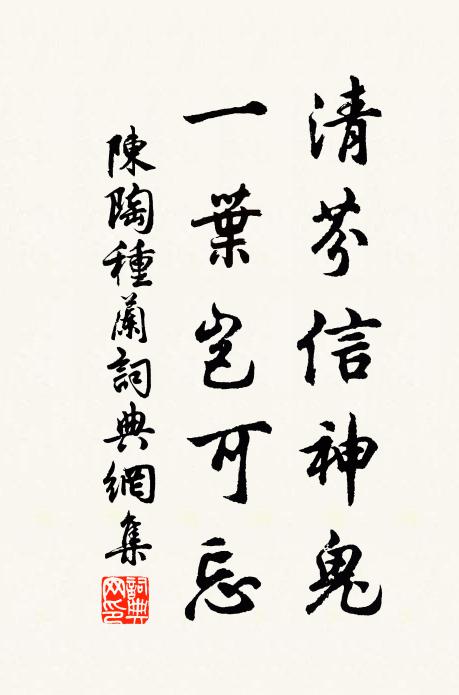 清芬信神鬼
一葉豈可忘
陳陶種蘭詞典網集
詞典网印